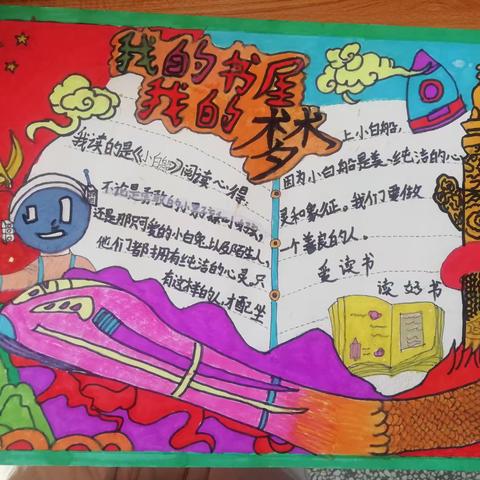 我的书屋
我的梦
我读的是《小白船》阅读心得.
不论是勇敢的小男孩和小女孩,
还是那只可爱的小白兔,以及陌生人,
他们都拥有纯洁的心灵。只
有这样的人,才配坐
上小白船,
因为小白船是善、纯洁的心
灵和象征。我们要做
一个善良的人。
爱读书
读好书